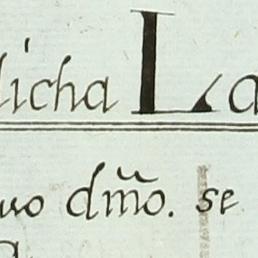 licha La
uo dm̃o. se